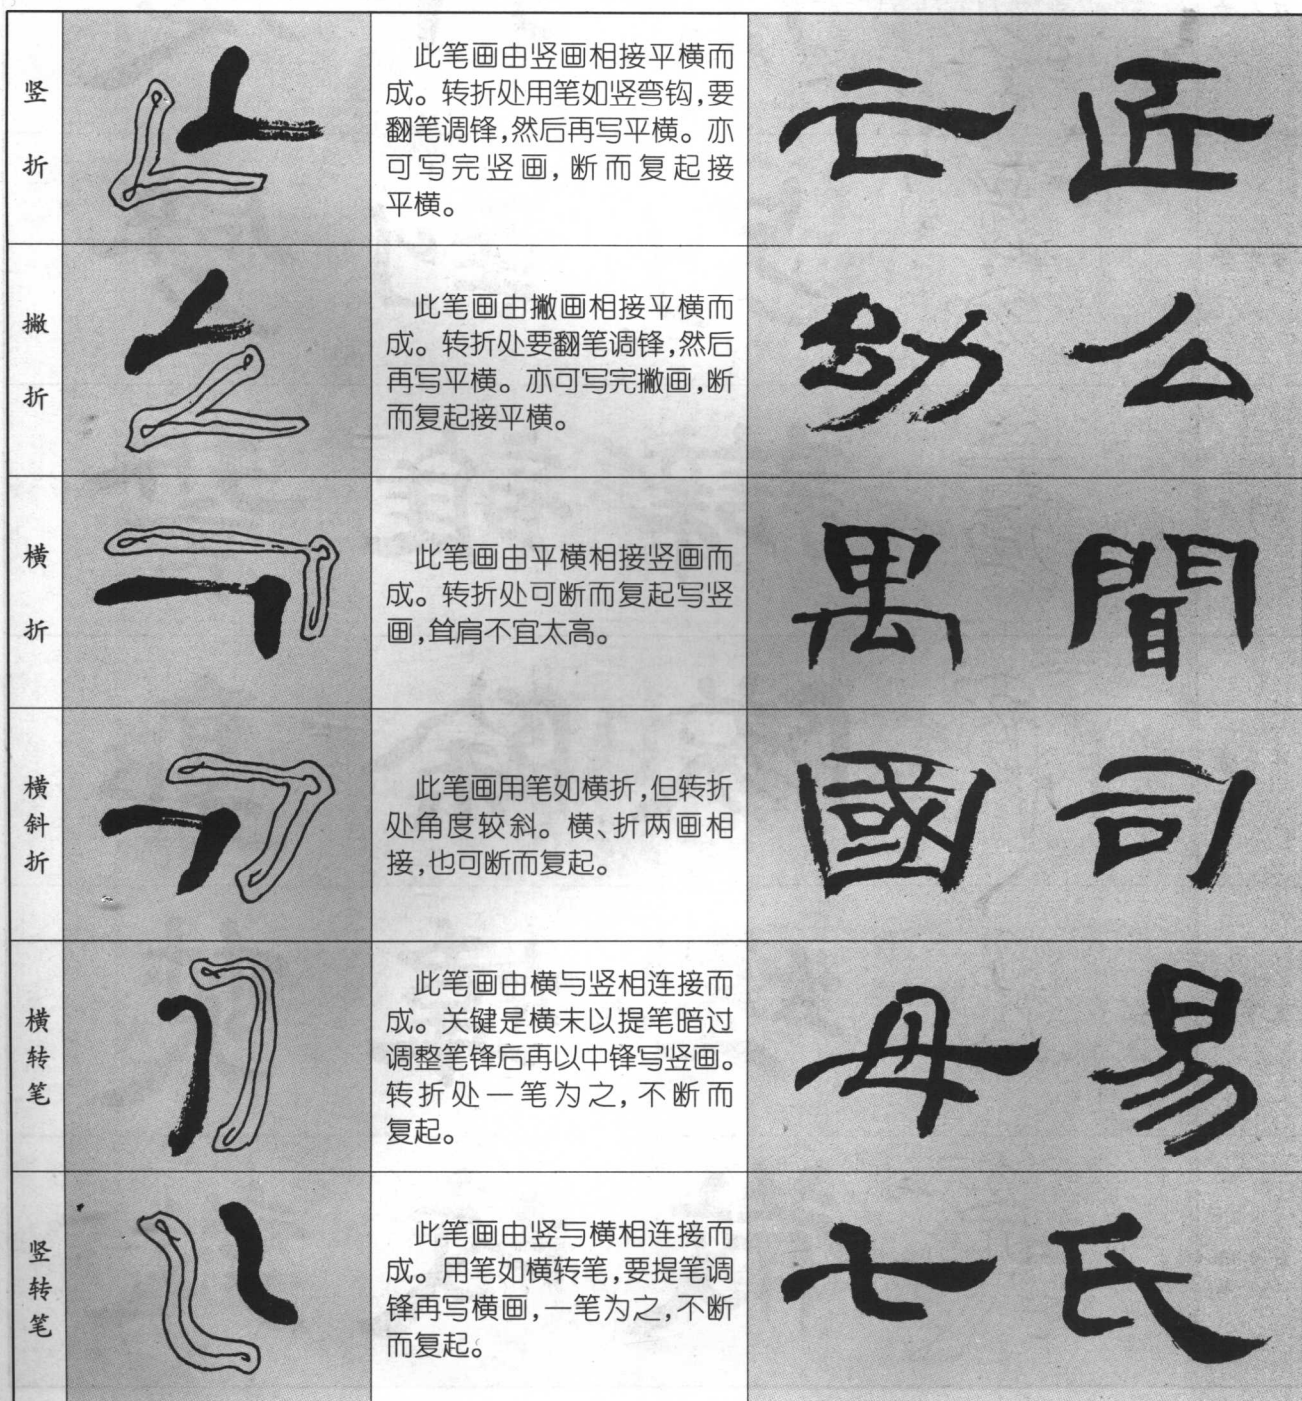 竖折
此笔画由竖画相接平横而
成。转折处用笔如竖弯钩,要
翻笔调锋,然后再写平横。亦
可写完竖画,断而复起接
平横。
亡 匠
撇折
此笔画由撇画相接平横而
成。转折处要翻笔调锋,然后
再写平横。亦可写完撇画,断
而复起接平横。
幼 么
横折
此笔画由平横相接竖画而
成。转折处可断而复起写竖
画,耸肩不宜太高。
禺 聞
横斜折
此笔画用笔如横折,但转折
处角度较斜。横、折两画相
接,也可断而复起。
國 司
横转笔
此笔画由横与竖相连接而
成。关键是横末以提笔暗过
调整笔锋后再以中锋写竖画。
转折处一笔为之,不断而
复起。
母 易
竖转笔
此笔画由竖与横相连接而
成。用笔如横转笔,要提笔调
锋再写横画,一笔为之,不断
而复起。
七 氏